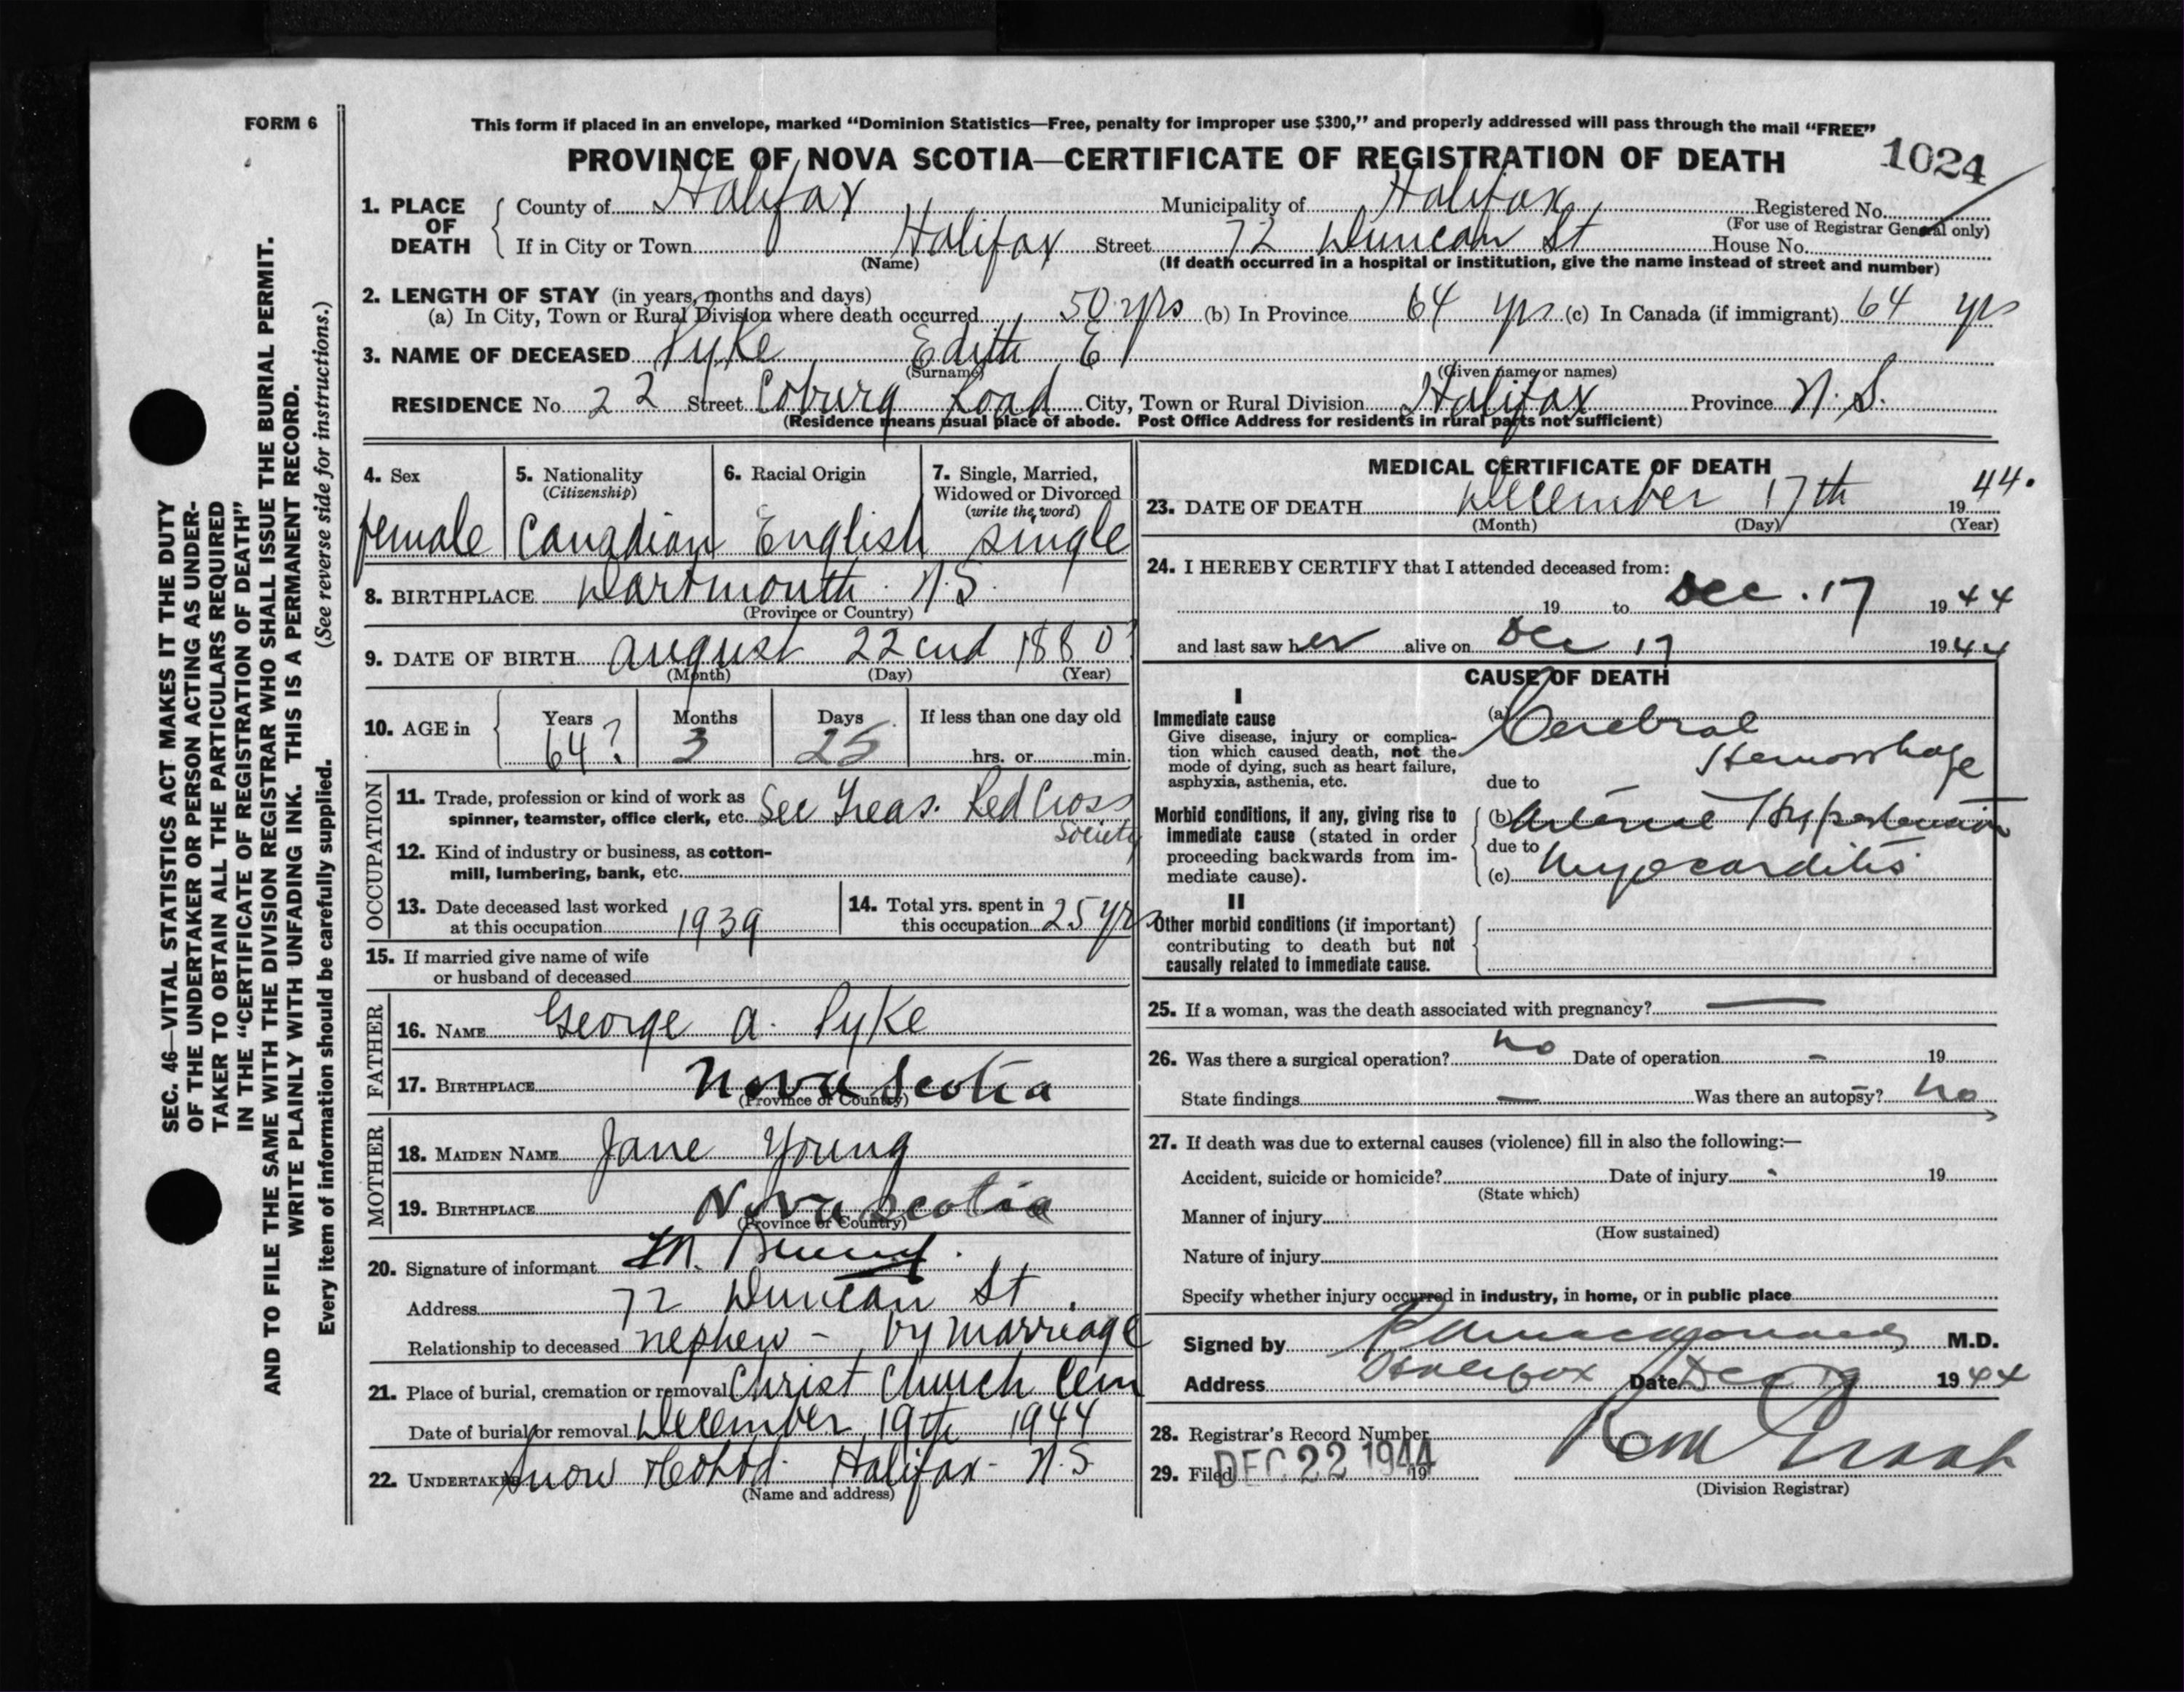 FORM 6
This form if placed in an envelope, marked “Dominion Statistics—Free, penalty for improper use $300,” and properly addressed will pass through the mail “FREE”
PROVINCE OF NOVA SCOTIA—CERTIFICATE OF REGISTRATION OF DEATH
1024
1. PLACE OF DEATH
County of Halifax Municipality of Halifax Registered No.
(For use of Registrar General only)
If in City or Town Halifax Street 72 Duncan St House No.
(Name) (If death occurred in a hospital or institution, give the name instead of street and number)
2. LENGTH OF STAY (in years, months and days)
(a) In City, Town or Rural Division where death occurred 50 yrs (b) In Province 64 yrs (c) In Canada (if immigrant) 64 yrs
3. NAME OF DECEASED Pyke Edith E
(Surname) (Given name or names)
RESIDENCE No. 22 Street Coburg Road City, Town or Rural Division Halifax Province N.S.
(Residence means usual place of abode. Post Office Address for residents in rural parts not sufficient)
4. Sex
female
5. Nationality
(Citizenship)
Canadian
6. Racial Origin
English
7. Single, Married,
Widowed or Divorced
(write the word)
single
8. BIRTHPLACE Dartmouth N.S.
(Province or Country)
9. DATE OF BIRTH august 22cnd 1880?
(Month) (Day) (Year)
10. AGE in
Years Months Days If less than one day old
64? 3 25 hrs. or min.
OCCUPATION
11. Trade, profession or kind of work as
spinner, teamster, office clerk, etc. Sec Treas. Red Cross
Society
12. Kind of industry or business, as cotton-
mill, lumbering, bank, etc.
13. Date deceased last worked
at this occupation 1939
14. Total yrs. spent in
this occupation 25 yrs
15. If married give name of wife
or husband of deceased
FATHER
16. NAME George A. Pyke
17. BIRTHPLACE Nova Scotia
(Province or Country)
MOTHER
18. MAIDEN NAME Jane Young
19. BIRTHPLACE Nova Scotia
(Province or Country)
20. Signature of informant M.
Address 72 Duncan St.
Relationship to deceased nephew - by marriage
21. Place of burial, cremation or removal Christ Church Cem
Date of burial or removal December 19th 1944
22. UNDERTAKER Snow & Co Ltd. Halifax - N.S
(Name and address)
MEDICAL CERTIFICATE OF DEATH
23. DATE OF DEATH December 17th 1944.
(Month) (Day) (Year)
24. I HEREBY CERTIFY that I attended deceased from:
19 to Dec. 17 1944
and last saw her alive on Dec 17 1944
CAUSE OF DEATH
I
Immediate cause
Give disease, injury or complica-
tion which caused death, not the
mode of dying, such as heart failure,
asphyxia, asthenia, etc.
(a) Cerebral
Hemorrhage
due to
Morbid conditions, if any, giving rise to
immediate cause (stated in order
proceeding backwards from im-
mediate cause).
(b) Arterial Hypertension
due to
(c) Myocarditis
II
Other morbid conditions (if important)
contributing to death but not
causally related to immediate cause.
25. If a woman, was the death associated with pregnancy? —
26. Was there a surgical operation? no Date of operation - 19
State findings — Was there an autopsy? no
27. If death was due to external causes (violence) fill in also the following:—
Accident, suicide or homicide? Date of injury 19
(State which)
Manner of injury
(How sustained)
Nature of injury
Specify whether injury occurred in industry, in home, or in public place
Signed by M.D.
Address Halifax Date Dec 19 1944
28. Registrar's Record Number
29. Filed DEC 22 1944 19
(Division Registrar)
SEC. 46—VITAL STATISTICS ACT MAKES IT THE DUTY
OF THE UNDERTAKER OR PERSON ACTING AS UNDER-
TAKER TO OBTAIN ALL THE PARTICULARS REQUIRED
IN THE “CERTIFICATE OF REGISTRATION OF DEATH”
AND TO FILE THE SAME WITH THE DIVISION REGISTRAR WHO SHALL ISSUE THE BURIAL PERMIT.
WRITE PLAINLY WITH UNFADING INK. THIS IS A PERMANENT RECORD.
Every item of information should be carefully supplied. (See reverse side for instructions.)